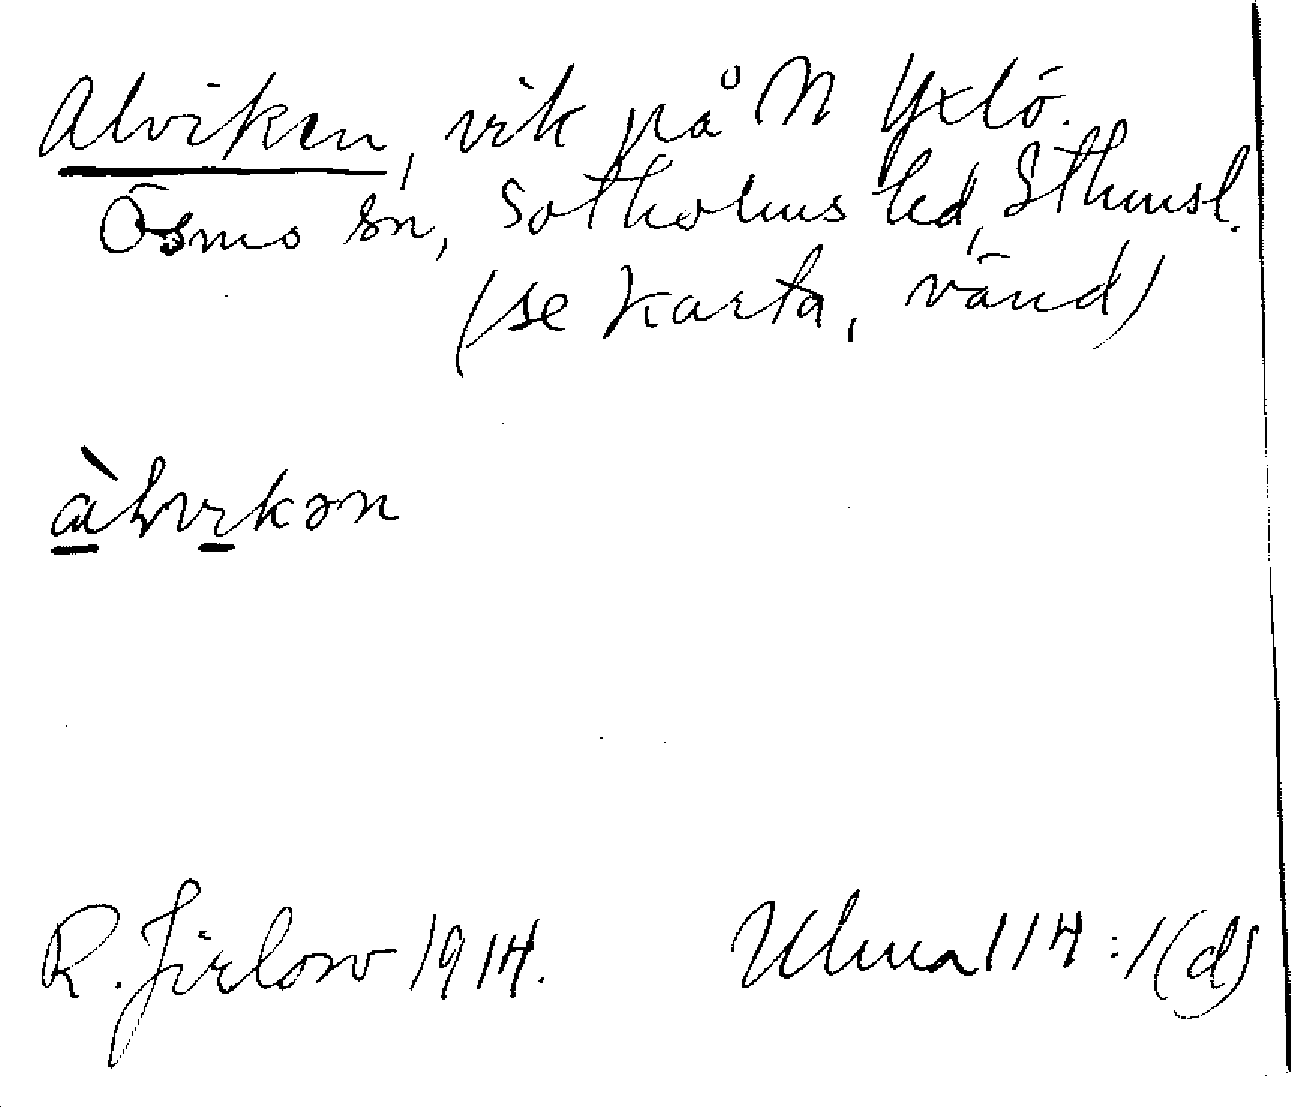 Alviken, vik på N Yxlö.
Ösmo sn, Sotholms hd, Sthmsl.
(se karta, vänd)
àlvikən
R. Jirlow 1914.
Ulma 114:1(d)